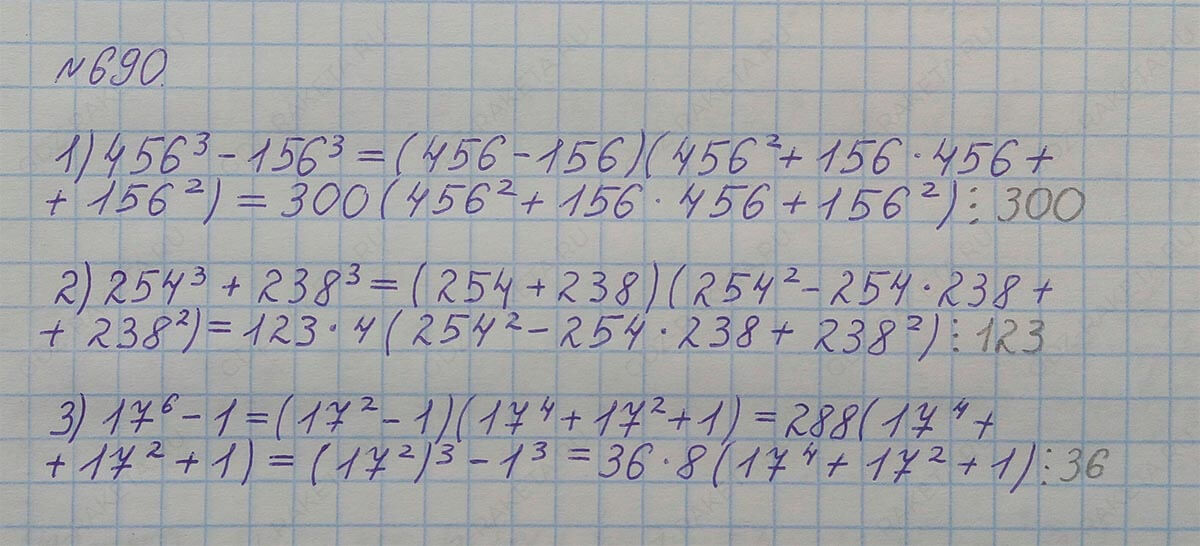 №690.
1) 456³ - 156³ = (456 - 156)(456² + 156 · 456 +
+ 156²) = 300(456² + 156 · 456 + 156²) ⋮ 300
2) 254³ + 238³ = (254 + 238)(254² - 254 · 238 +
+ 238²) = 123 · 4(254² - 254 · 238 + 238²) ⋮ 123
3) 17⁶ - 1 = (17² - 1)(17⁴ + 17² + 1) = 288(17⁴ +
+ 17² + 1) = (17²)³ - 1³ = 36 · 8(17⁴ + 17² + 1) ⋮ 36